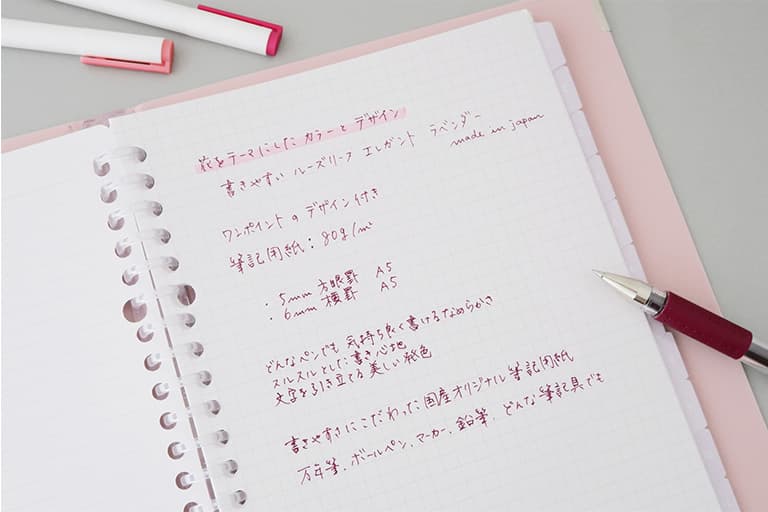 花をテーマにしたカラーとデザイン
書きやすい ルーズリーフ エレガント ラベンダー
made in japan
ワンポイントのデザイン付き
筆記用紙：80g/m²
：5mm 方眼罫 A5
：6mm 横罫 A5
どんなペンでも気持ち良く書けるなめらかさ
スルスルとした書き心地
文字を引き立てる美しい発色
書きやすさにこだわった国産オリジナル筆記用紙
万年筆、ボールペン、マーカー、鉛筆、どんな筆記具でも